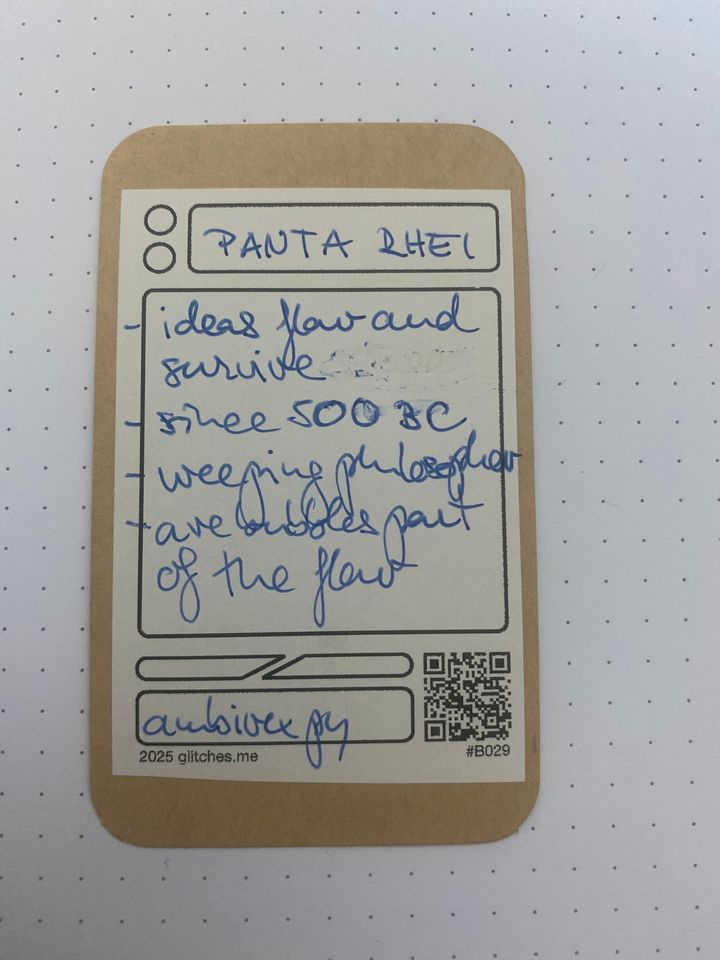 PANTA RHEI
- ideas flow and
survive
- since 500 BC
- weeping philosopher
- are bubbles part
of the flow
2025 glitches.me
#B029